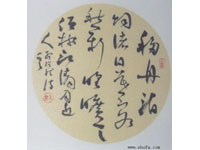 移舟泊
烟渚日暮客
愁新野旷天
低树江清月近
人